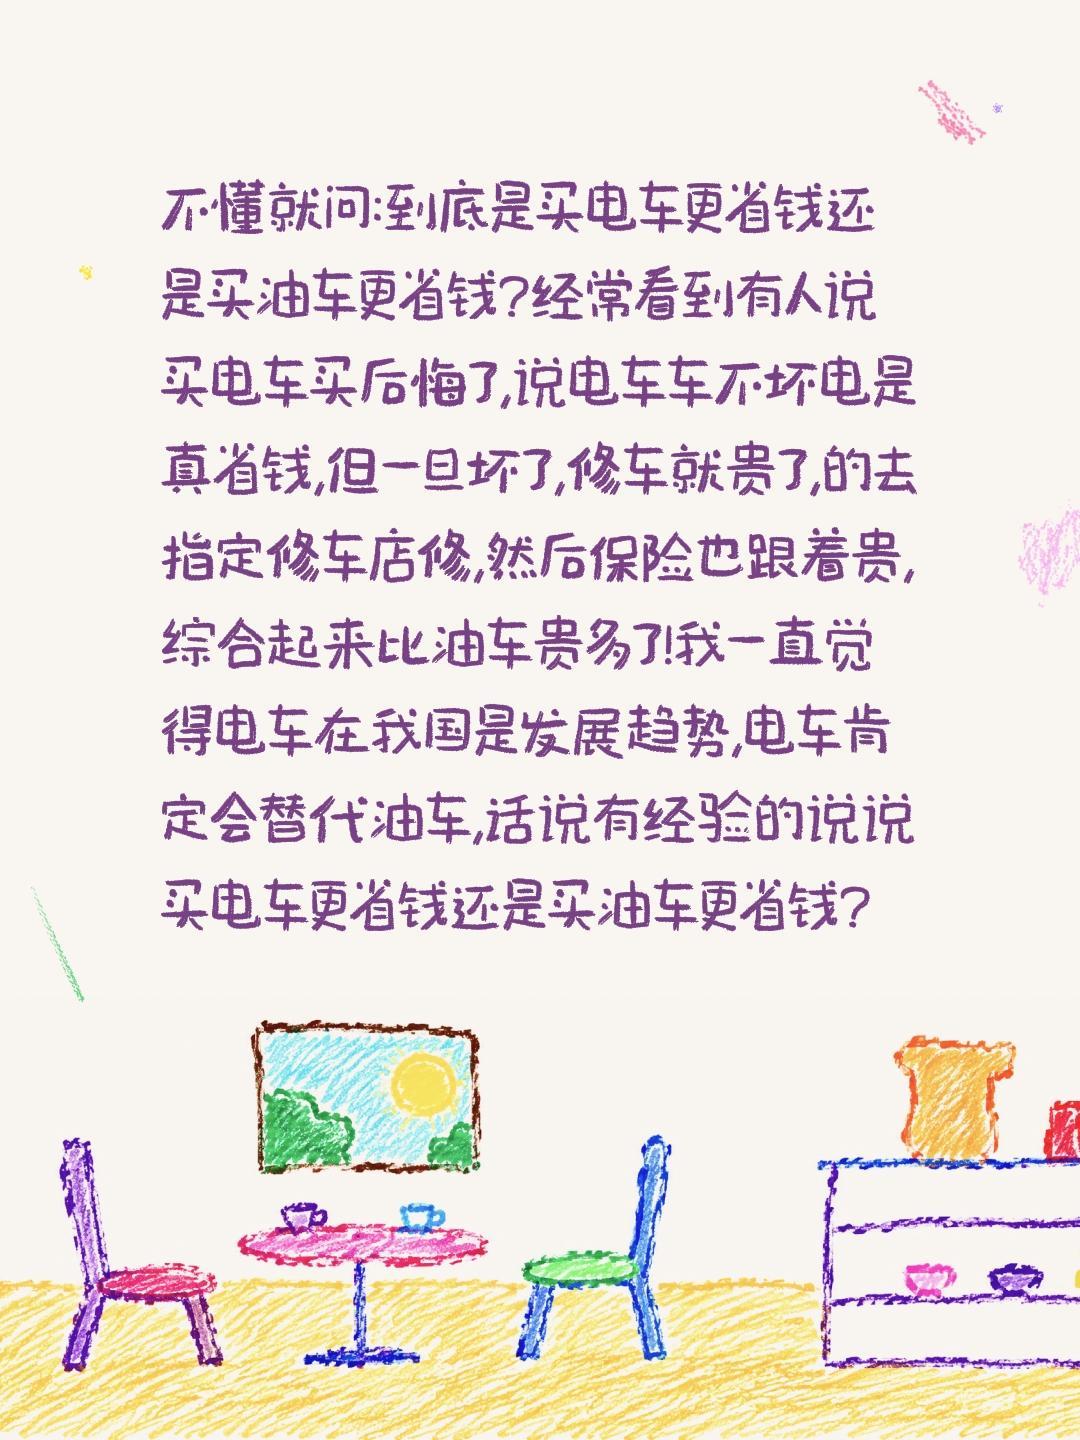 不懂就问:到底是买电车更省钱还
是买油车更省钱?经常看到有人说
买电车买后悔了,说电车车不坏电是
真省钱,但一旦坏了,修车就贵了,的去
指定修车店修,然后保险也跟着贵,
综合起来比油车贵多了!我一直觉
得电车在我国是发展趋势,电车肯
定会替代油车,话说有经验的说说
买电车更省钱还是买油车更省钱?